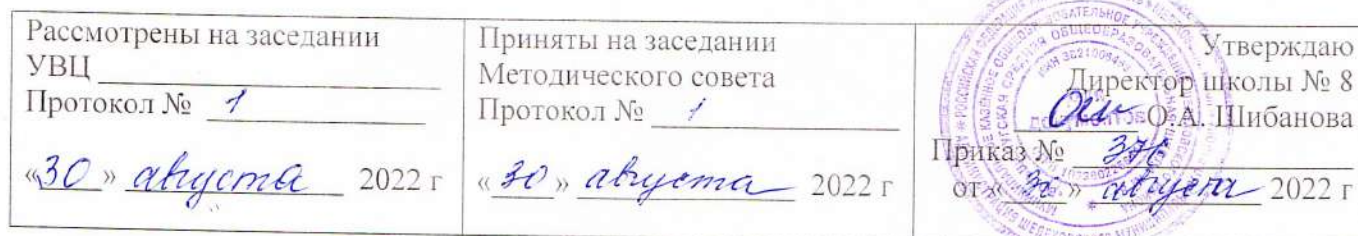 Рассмотрены на заседании
УВЦ
Протокол № 1
«30» августа 2022 г
Приняты на заседании
Методического совета
Протокол № 1
«30» августа 2022 г
Утверждаю
Директор школы № 8
О.А. Шибанова
Приказ №
от « » августа 2022 г